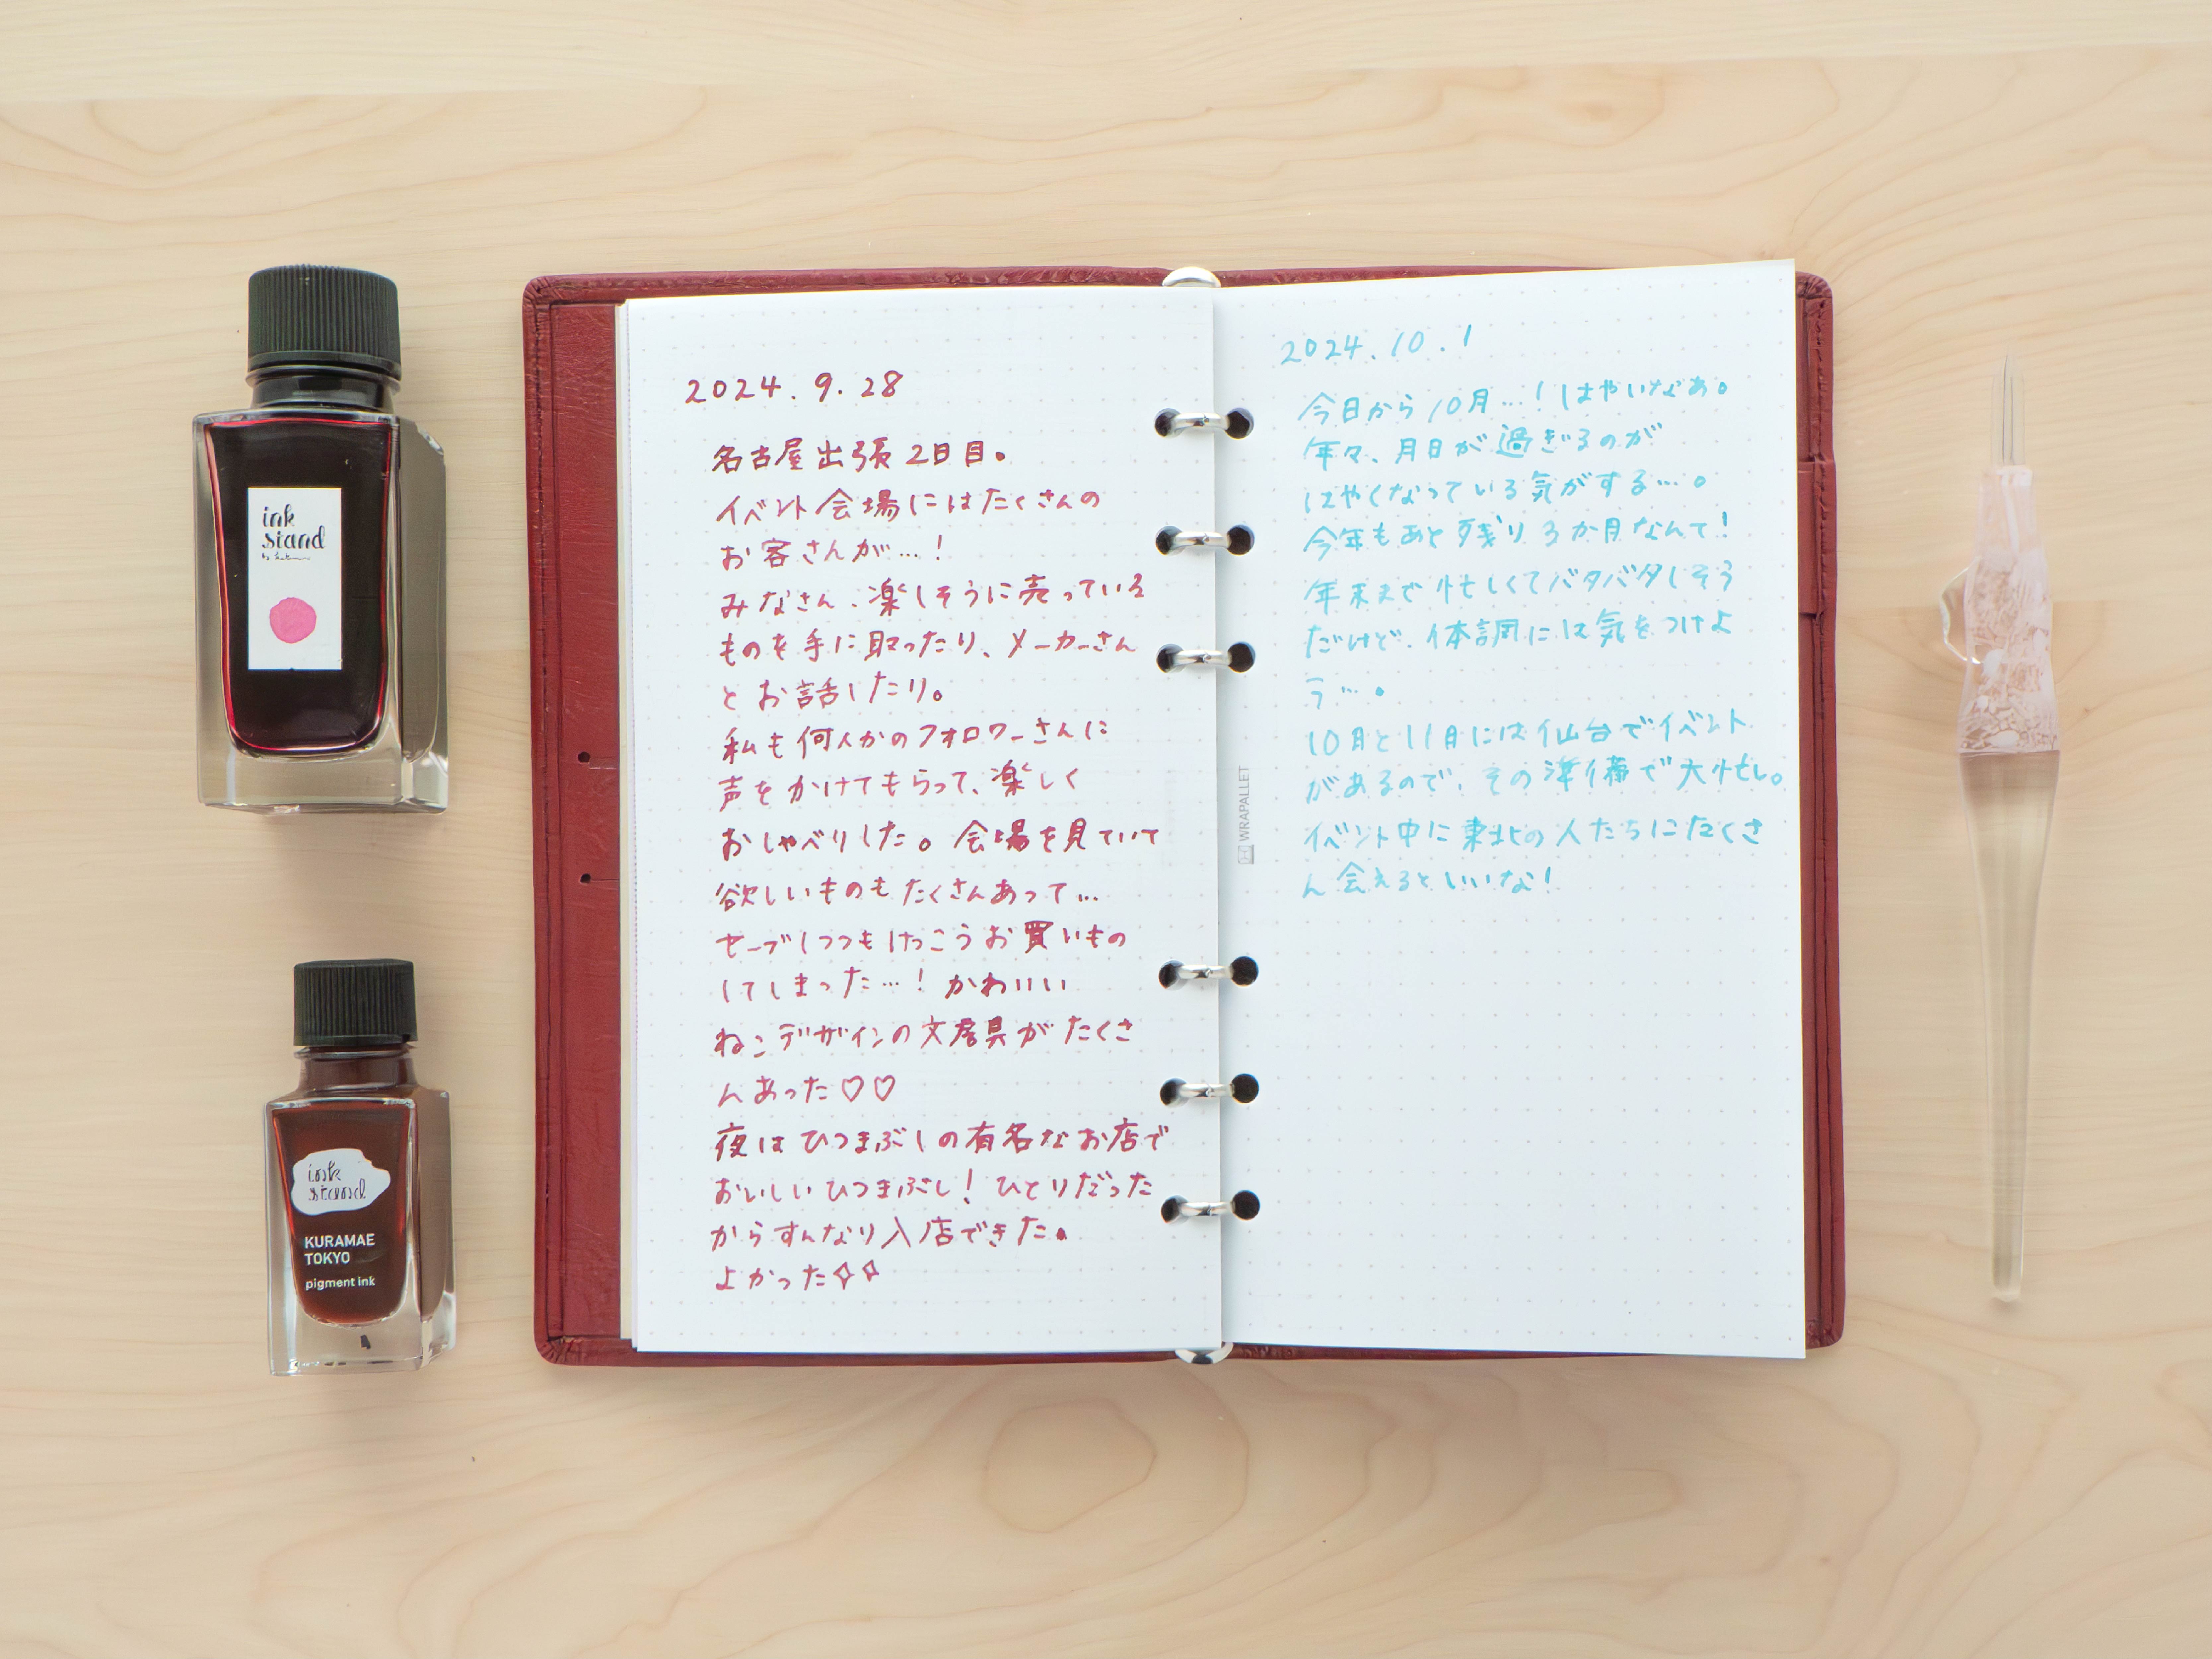 ink
stand
ink
stand
KURAMAE
TOKYO
pigment ink
2024.9.28
名古屋出張2日目。
イベント会場にはたくさんの
お客さんが…!
みなさん、楽しそうに売っている
ものを手に取ったり、メーカーさん
とお話したり。
私も何人かのフォロワーさんに
声をかけてもらって、楽しく
おしゃべりした。会場を見ていて
欲しいものもたくさんあって…
セーブしつつもけっこうお買いもの
してしまった…!かわいい
ねこデザインの文房具がたくさ
んあった♡♡
夜はひつまぶしの有名なお店で
おいしいひつまぶし!ひとりだった
からすんなり入店できた。
よかった✧✧
WRAPALLET
2024.10.1
今日から10月…!はやいなあ。
年々、月日が過ぎるのが
はやくなっている気がする…。
今年もあと残り3か月なんて!
年末まで忙しくてバタバタしそう
だけど、体調には気をつけよ
う…。
10月と11月には仙台でイベント
があるので、その準備で大忙し。
イベント中に東北の人たちにたくさ
ん会えるといいな!